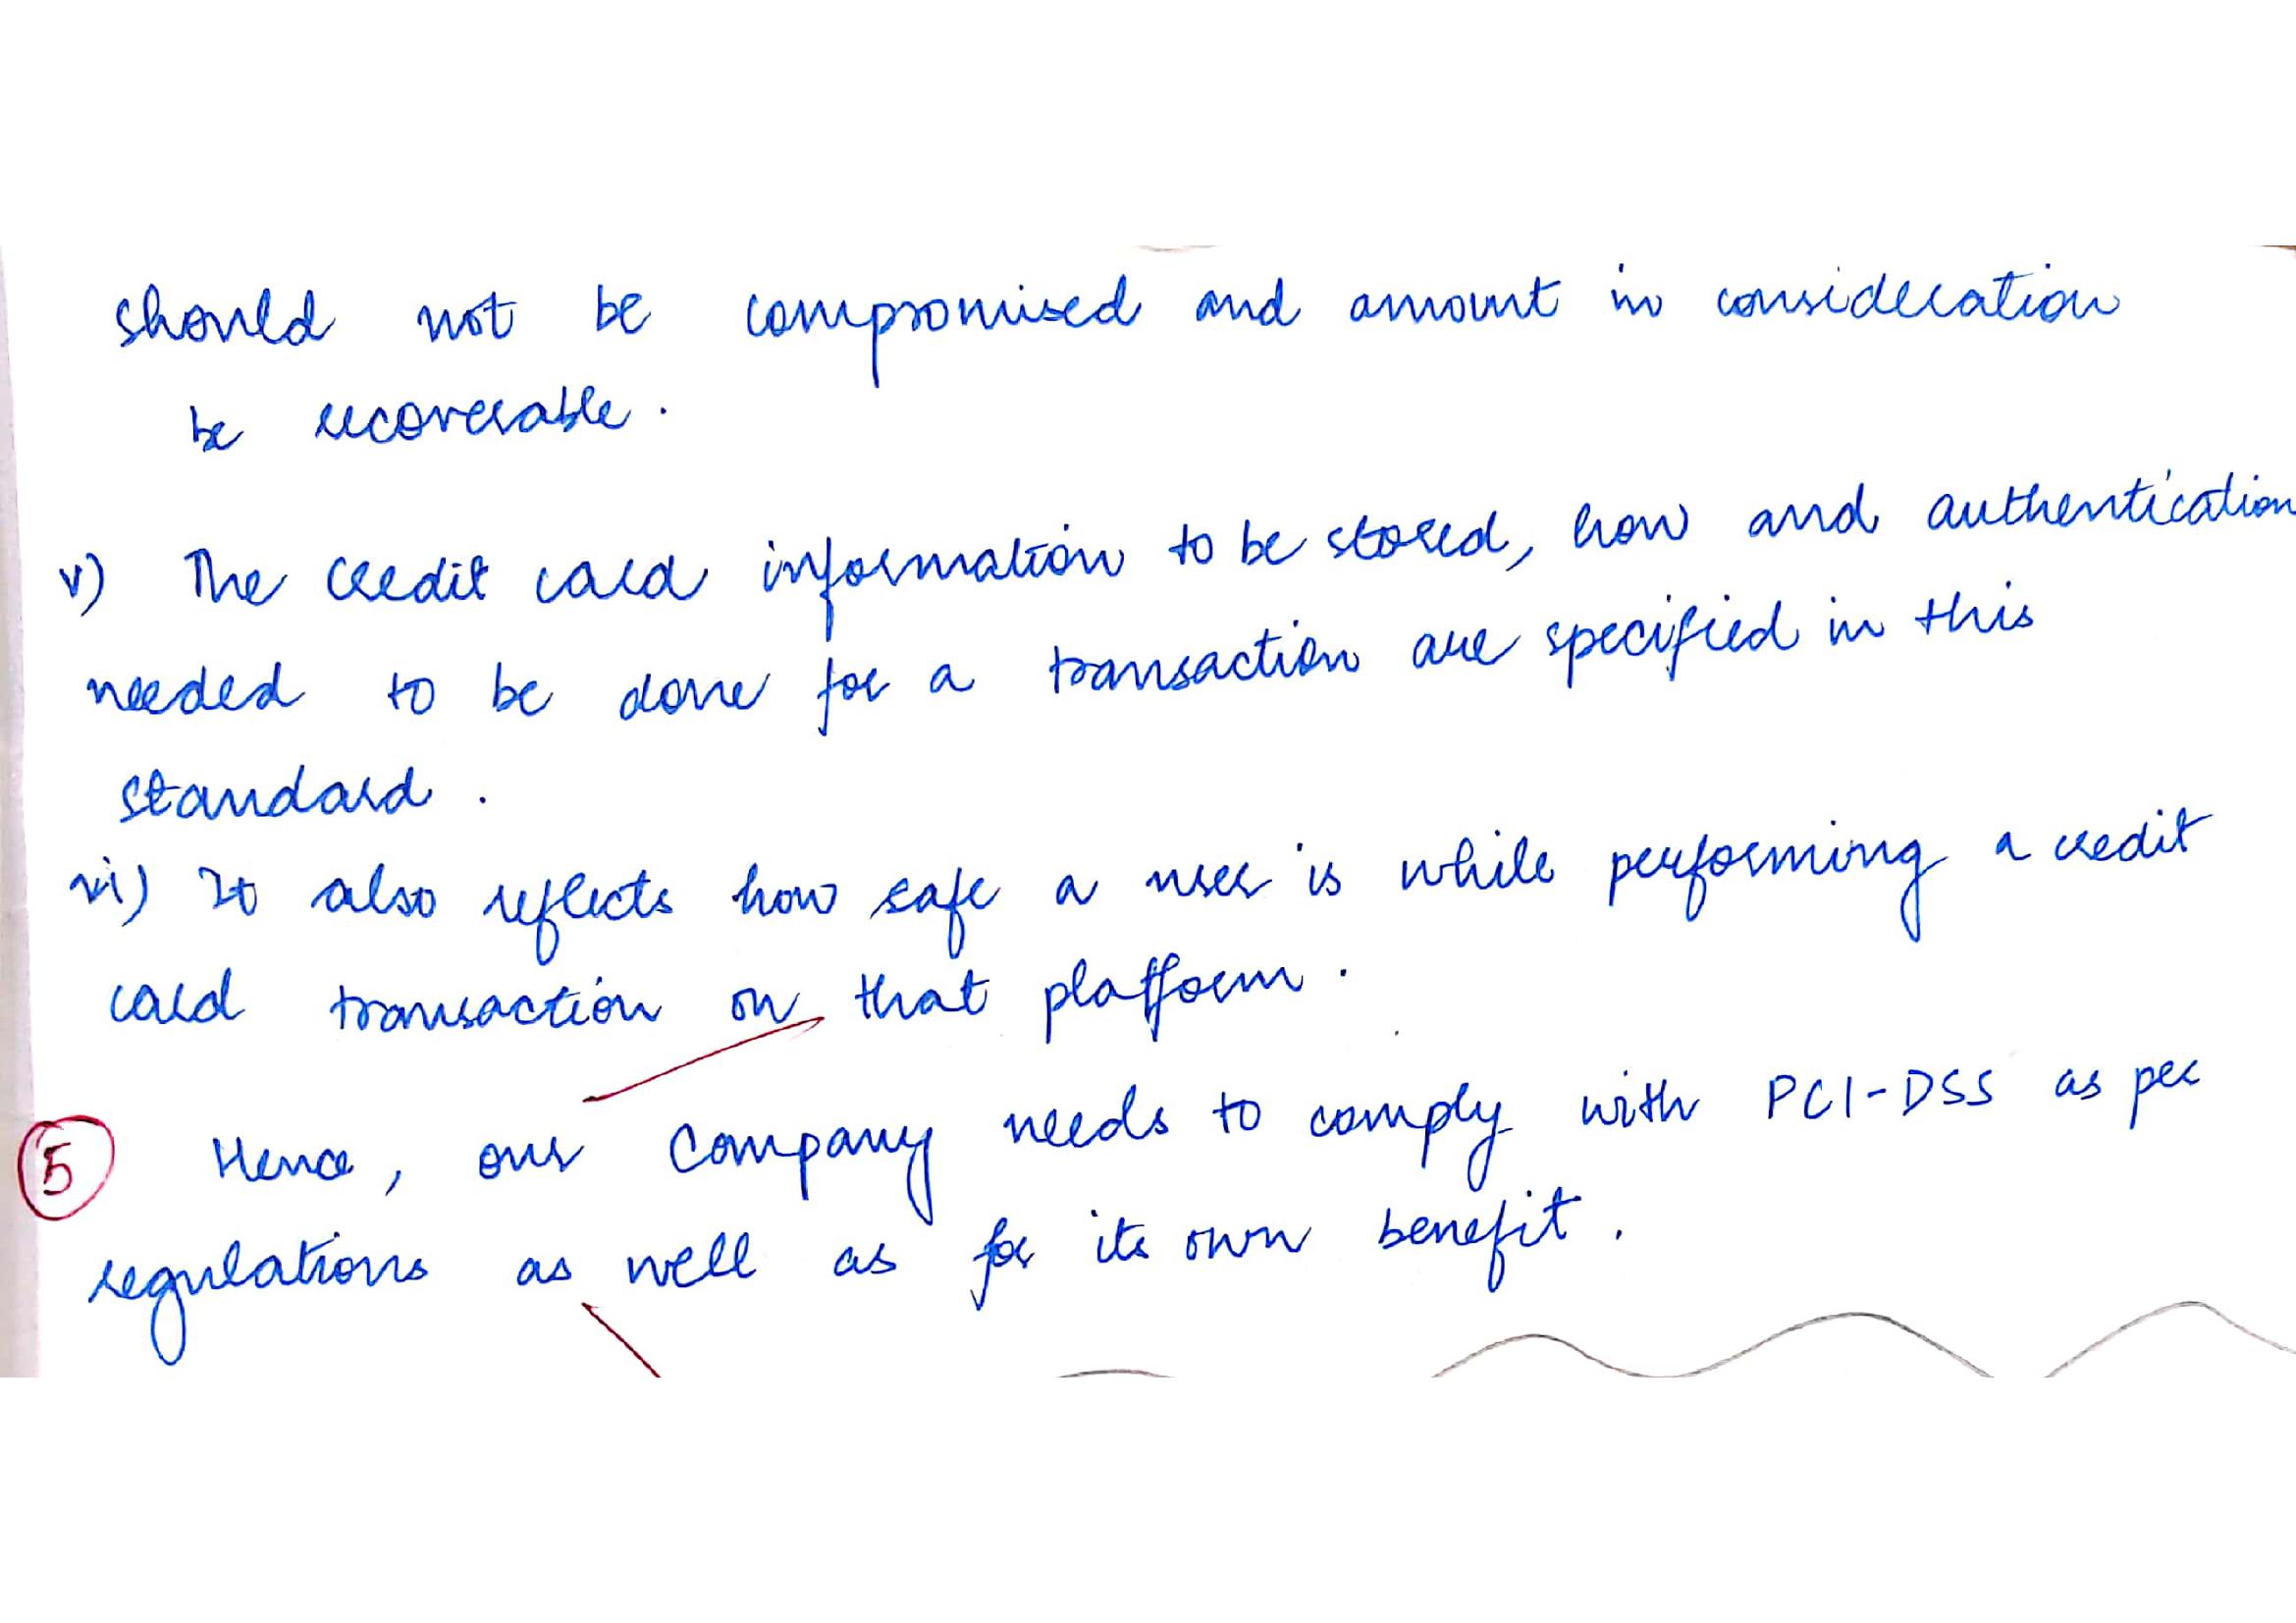 should not be compromised and amount in consideration
be recoverable.
v) The credit card information to be stored, how and authentication
needed to be done for a transaction are specified in this
standard.
vi) It also reflects how safe a user is while performing a credit
card transaction on that platform.
5 Hence, our Company needs to comply with PCI-DSS as per
regulations as well as for its own benefit.